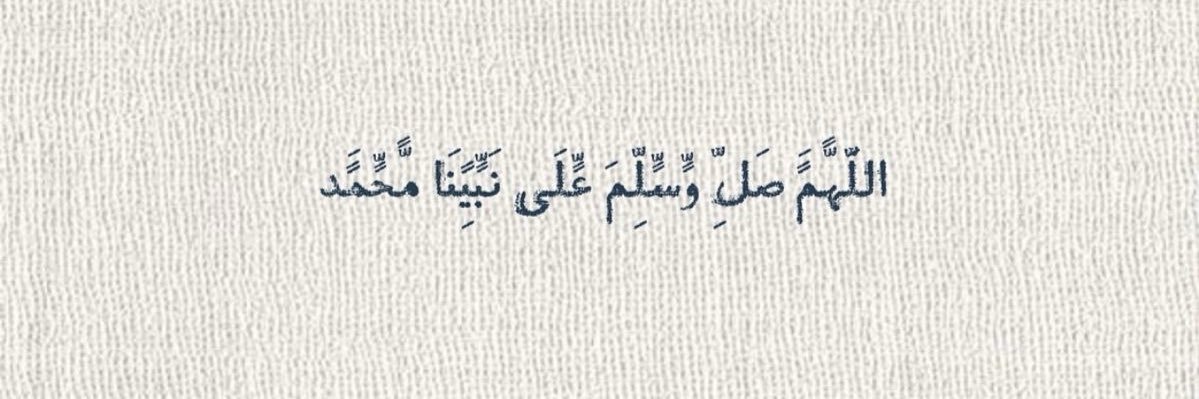 اللّهُمَّ صَلِّ وَسَلِّم عَلَى نَبِيِّنَا مُحَمَّد